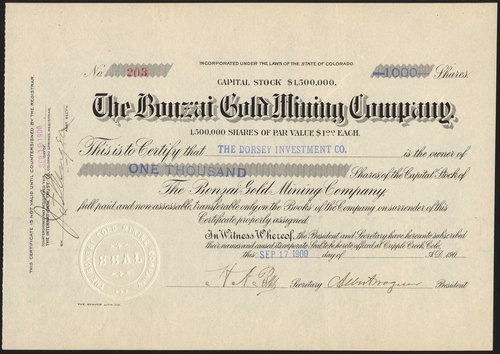 INCORPORATED UNDER THE LAWS OF THE STATE OF COLORADO.
No 203
1000 Shares.
CAPITAL STOCK $1,500,000.
The Bonzai Gold Mining Company
1,500,000 SHARES OF PAR VALUE $1.00 EACH.
This is to Certify that THE DORSEY INVESTMENT CO. is the owner of
ONE THOUSAND Shares of the Capital Stock of
The Bonzai Gold Mining Company,
full paid and non-assessable, transferable only on the Books of the Company on surrender of this
Certificate properly assigned.
In Witness Whereof, the President and Secretary have hereunto subscribed
their names and caused its corporate Seal to be hereto affixed at Cripple Creek, Colo.
this SEP 17 1900 day of A.D. 190
Secretary
President
SEAL
THIS CERTIFICATE IS NOT VALID UNTIL COUNTERSIGNED BY THE REGISTRAR